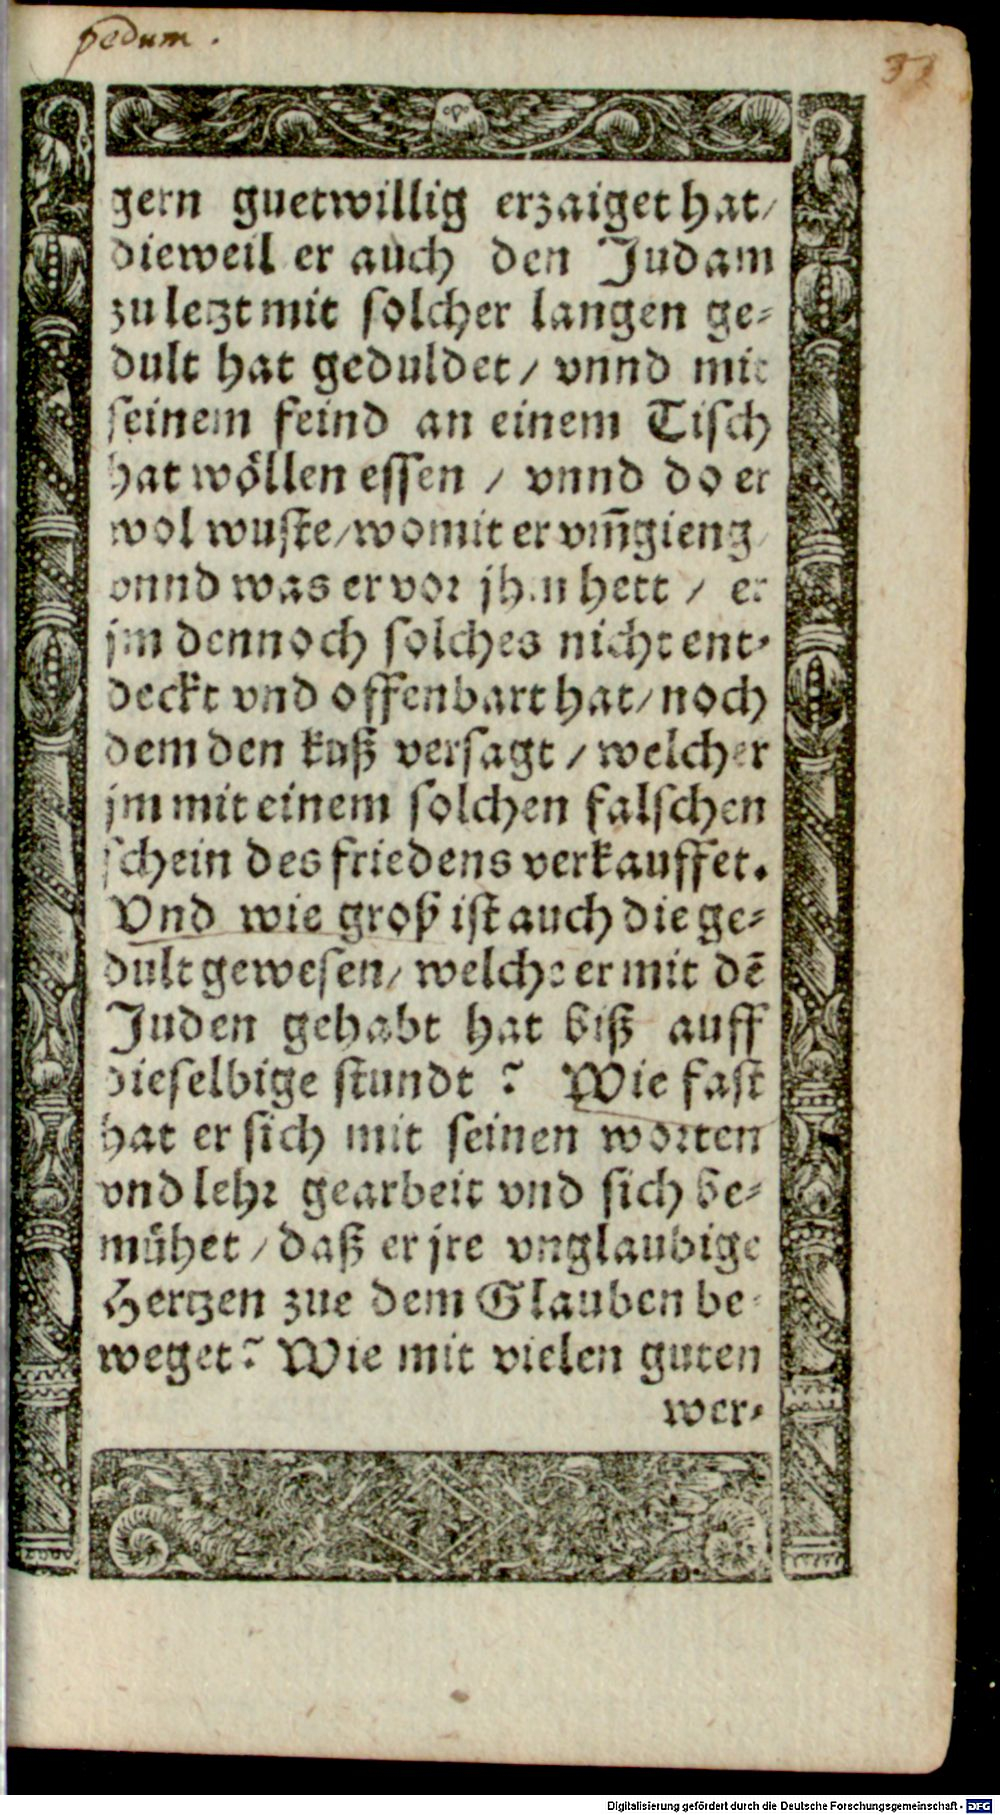 pedum.
37
gern guetwillig erzaiget hat/
dieweil er auch den Judam
zu letzt mit solcher langen ge-
dult hat geduldet / vnnd mit
seinem feind an einem Tisch
hat wöllen essen / vnnd do er
wol wuste/womit er vm̃gieng/
vnnd was er vor jhm hett / er
jm dennoch solches nicht ent-
deckt vnd offenbart hat/noch
dem den kuß versagt / welcher
jm mit einem solchen falschen
schein des friedens verkauffet.
Vnd wie groß ist auch die ge-
dult gewesen/ welche er mit dẽ
Juden gehabt hat biß auff
dieselbige stundt ? Wie fast
hat er sich mit seinen worten
vnd lehr gearbeit vnd sich be-
mühet / daß er jre vnglaubige
Hertzen zue dem Glauben be-
weget? Wie mit vielen guten
wer-
Digitalisierung gefördert durch die Deutsche Forschungsgemeinschaft - DFG